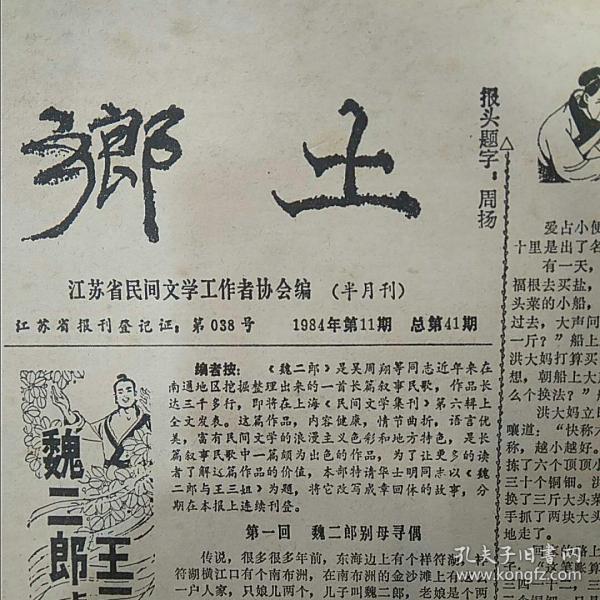 鄉土
报头题字：周扬
江苏省民间文学工作者协会编 （半月刊）
江苏省报刊登记证：第038号 1984年第11期 总第41期
编者按：《魏二郎》是吴周翔等同志近年来在
南通地区挖掘整理出来的一首长篇叙事民歌，作品长
达三千多行，即将在上海《民间文学集刊》第六辑上
全文发表。这篇作品，内容健康，情节曲折，语言优
美，富有民间文学的浪漫主义色彩和地方特色，是长
篇叙事民歌中一篇颇为出色的作品，为了让更多的读
者了解这篇作品的价值，本部特请华士明同志以《魏
二郎与王三姐》为题，将它改写成章回体的故事，分
期在本报上连续刊登。
魏二郎
王三
第一回 魏二郎别母寻偶
传说，很多很多年前，东海边上有个祥符湖，祥
符湖横江口有个南布洲，在南布洲的金沙滩上有
一户人家，只娘儿两个，儿子叫魏二郎，老娘是个两
爱占小便
十里是出了名
有一天，
福根去买盐，
头菜的小船，
过去，大声问
一斤？”船上
洪大妈打算买
想，朝船上大
么个换法？”
洪大妈立即
嚷道：“快称
称，越小越好。
拣了六个顶顶小
三十个铜钿。洪
换了三斤大头菜
手抓了两块大头
地走了。
孔夫子旧书网
www.kongfz.com